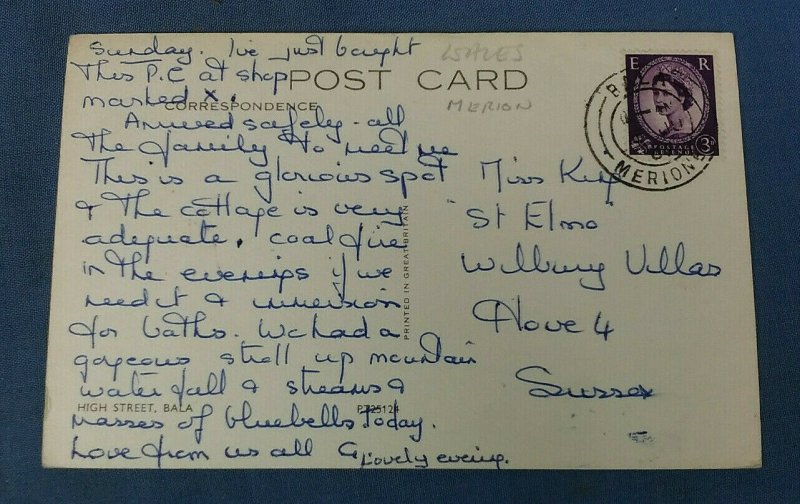 Sunday. I've just bought
This P.C at shop
marked x.
Arrived safely - all
The family to meet me
This is a glorious spot
& The cottage is very
adequate, coal fire
in the evenings if we
need it & immersion
for baths. We had a
gorgeous stroll up mountain
waterfall & streams &
masses of bluebells today.
Love from us all G
Lovely evening.
POST CARD
CORRESPONDENCE
WALES
MERION
PRINTED IN GREAT BRITAIN
HIGH STREET, BALA
E R
POSTAGE
REVENUE
3D
BALA
MERIONE
Miss King
"St Elmo"
Wilbury Villas
Hove 4
Sussex